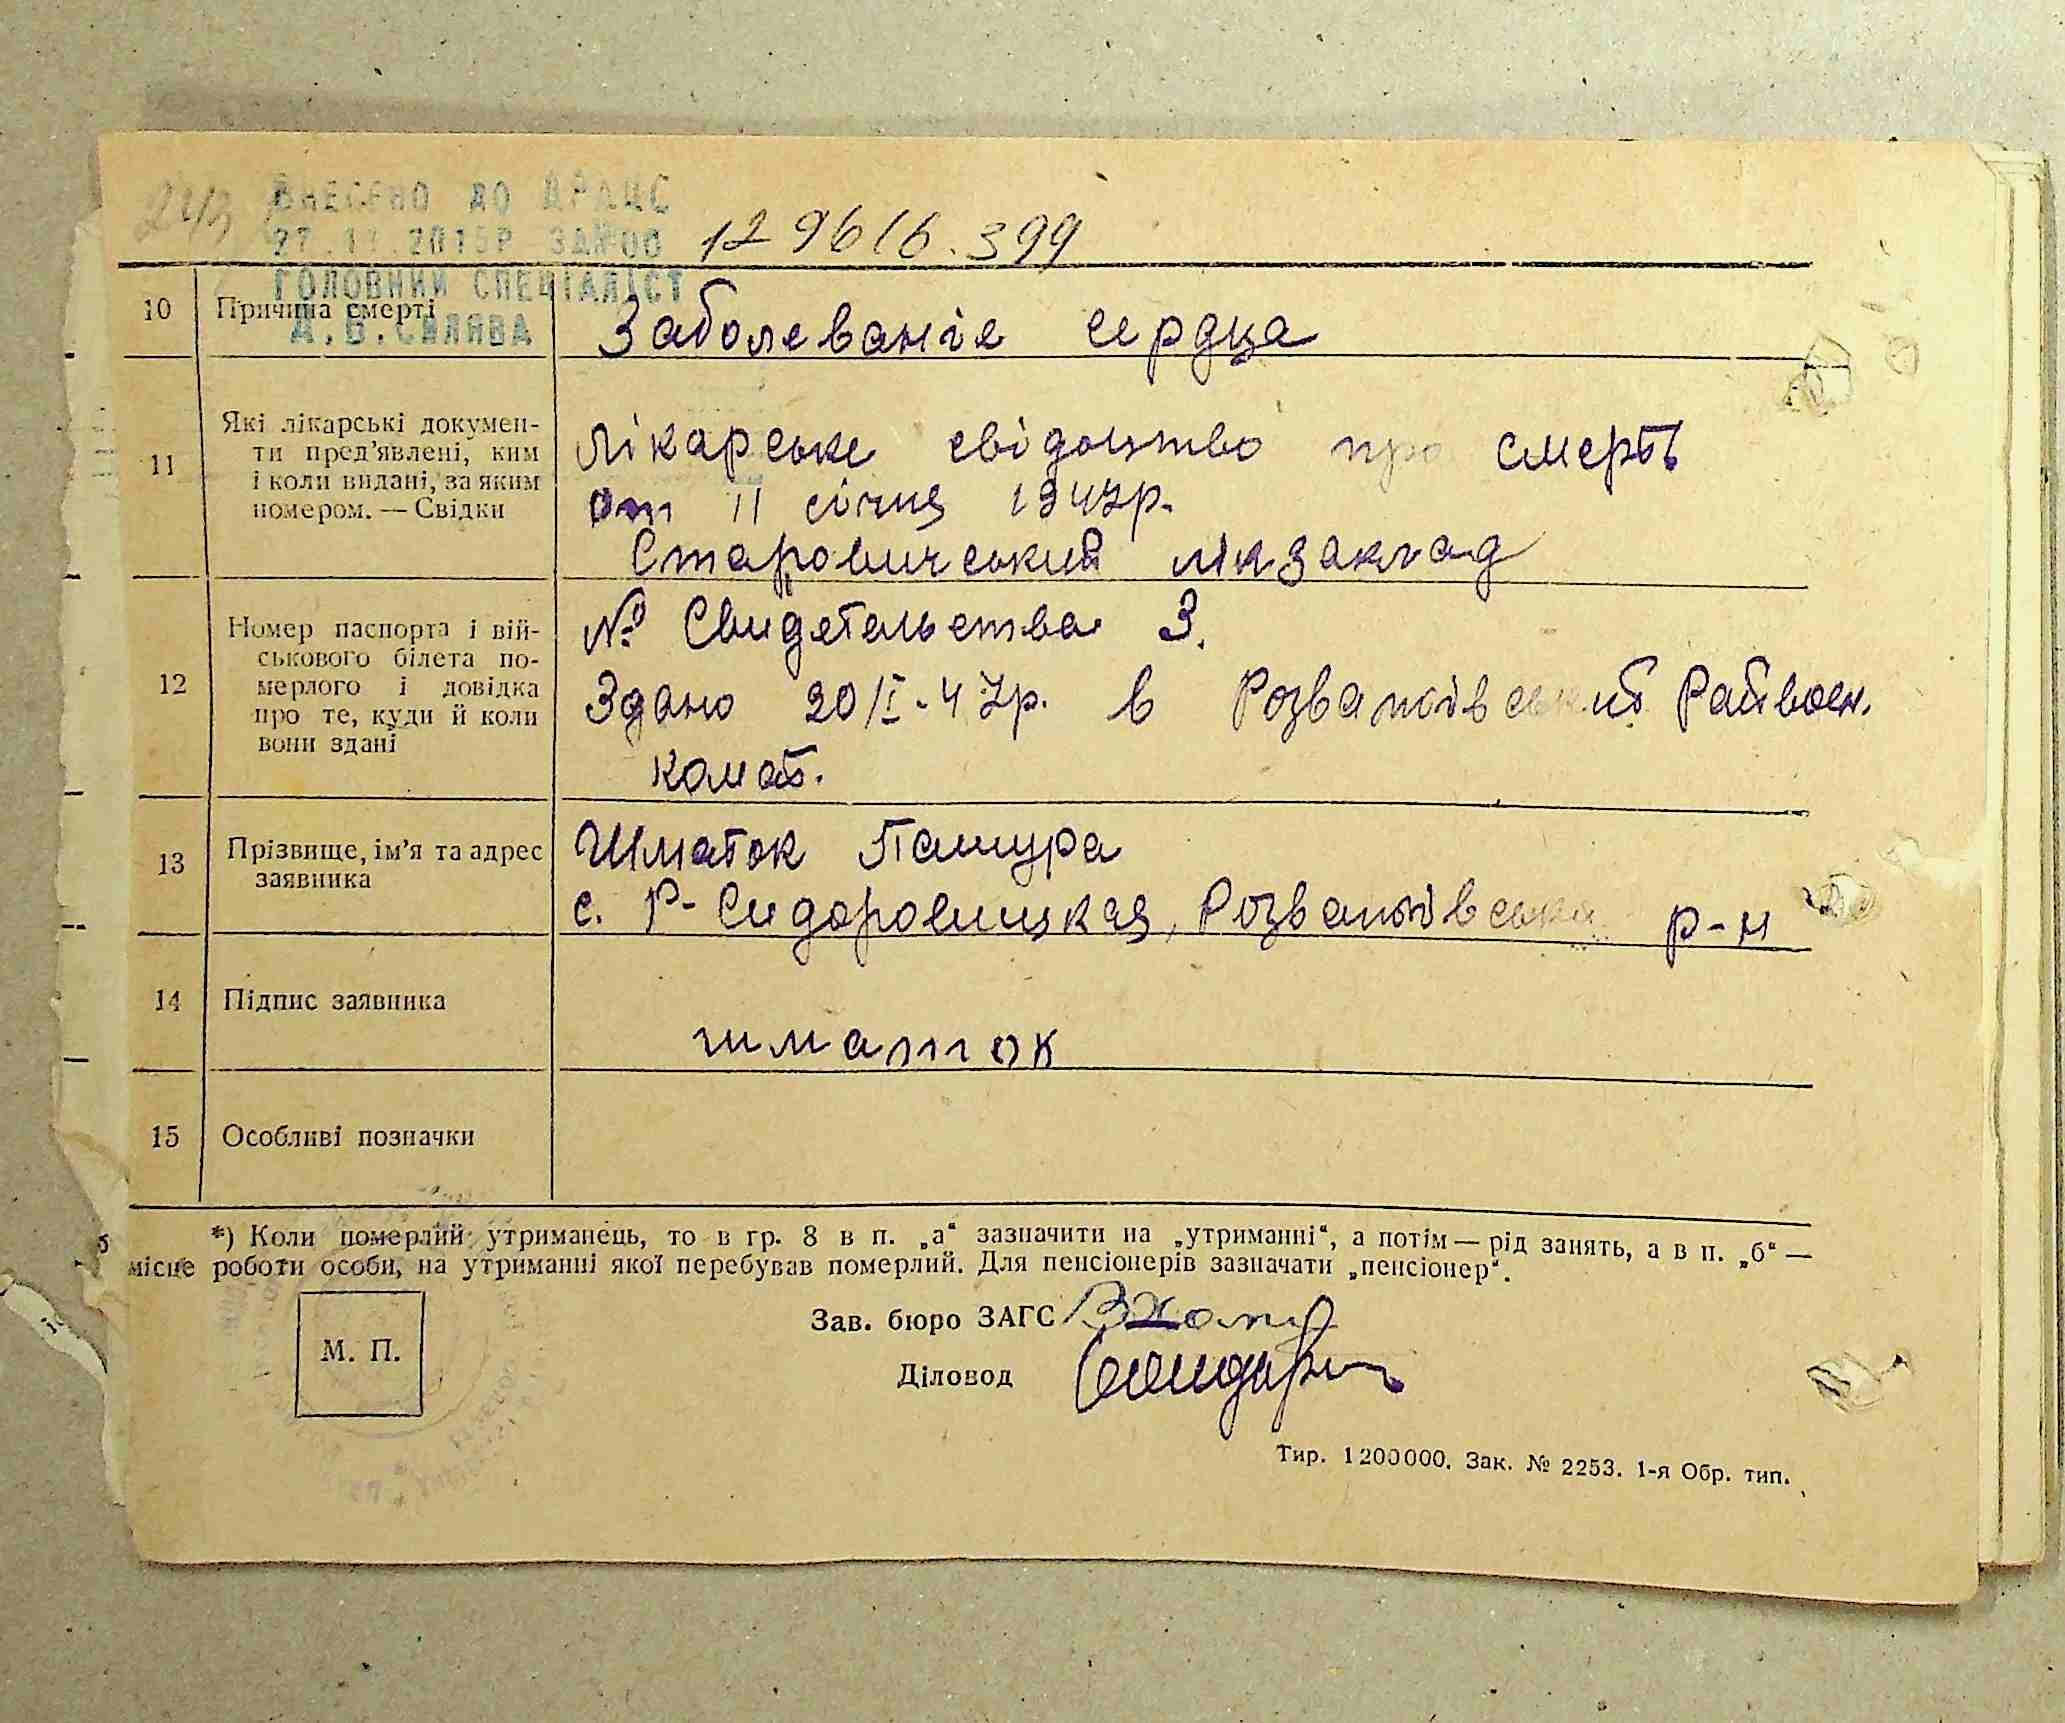 243
ВНЕСЕНО ДО ДРАЦС
27.11.2015Р
ГОЛОВНИЙ СПЕЦІАЛІСТ
12 9616.399
10 Причина смерті Заболеваніе сердца
11 Які лікарські докумен-
ти пред’явлені, ким
і коли видані, за яким
номером. — Свідки
Лікарське свідоцтво про смерть
От 11 січня 1947р.
Старовичський лікзаклад
12 Номер паспорта і вій-
ськового білета по-
мерлого і довідка
про те, куди й коли
вони здані
№ Свидетельства 3.
Здано 20/I-47р. в Розважівський Райвоен.
комат.
13 Прізвище, ім’я та адрес
заявника
Шматок
с. Р- Розважівська р-н
14 Підпис заявника
шматок
15 Особливі позначки
*) Коли померлий утриманець, то в гр. 8 в п. „а“ зазначити на „утриманні“, а потім — рід занять, а в п. „б“ —
місце роботи особи, на утриманні якої перебував померлий. Для пенсіонерів зазначати „пенсіонер“.
М. П.
Зав. бюро ЗАГС
Діловод
Тир. 1200000. Зак. № 2253. 1-я Обр. тип.